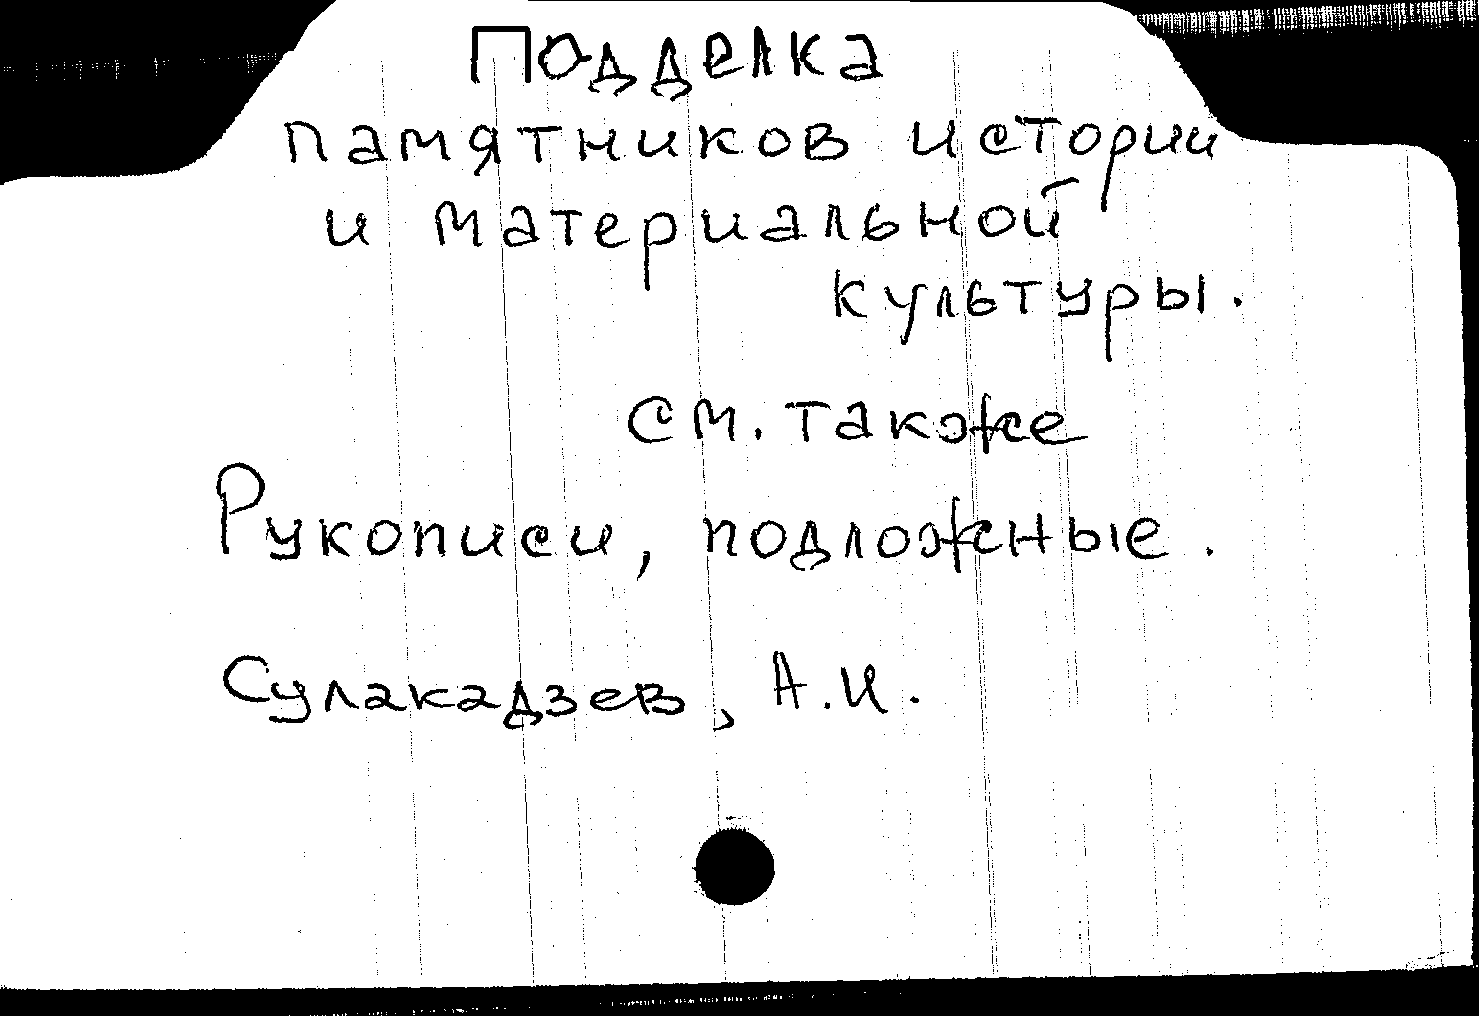 Подделка
памятников истории
и материальной
культуры.
см. также
Рукописи, подложные.
Сулакадзев, А.И.